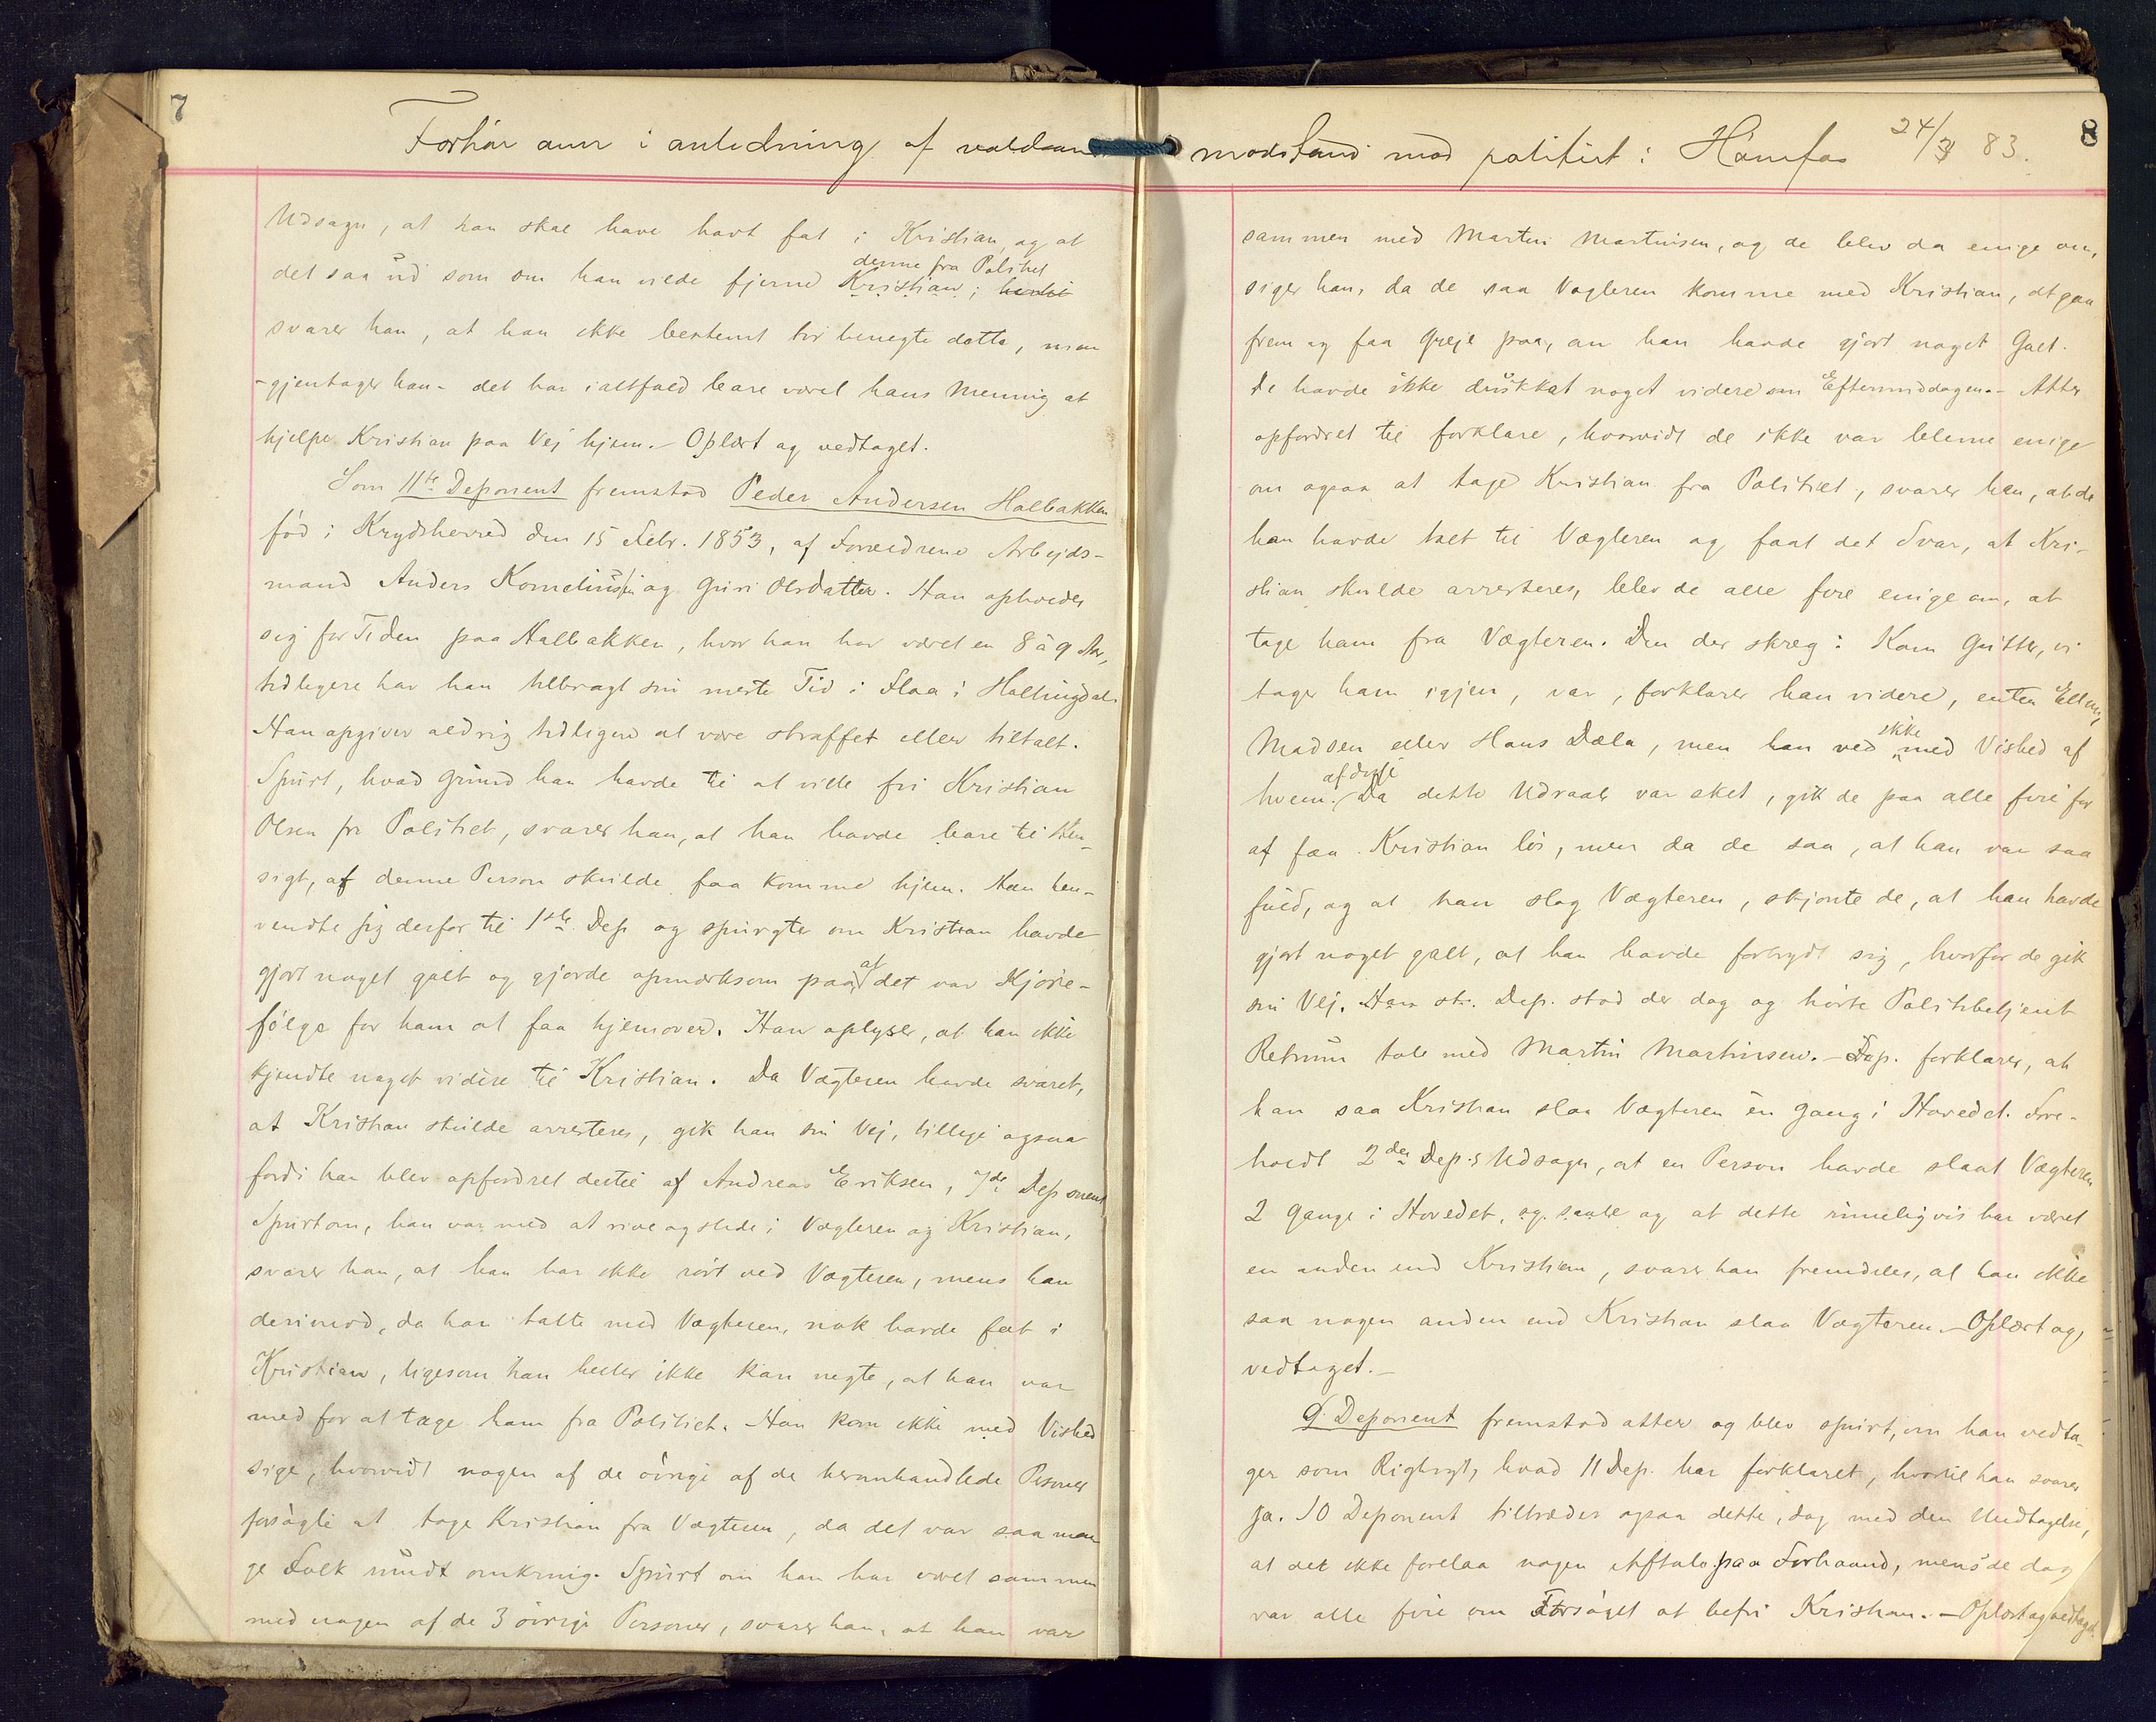 7
Forhör aun i anledning af voldsom
Udsagn, at han skal have havt fat i Kristian, og at
denne fra Politiet
det saa ud som om han vilde fjerne Kristian;
svarer han, at han ikke bestemt tör benegte dette, men
- gjentager han - det har ialtfald bare været hans Mening at
hjelpe Kristian paa Vej hjem. - Oplæst og vedtaget.
Som 11te Deponent fremstod Peder Andersen Halbakken
föd i Krydsherred den 15 Febr. 1853, af Forældrene Arbejds-
mand Anders Korneliussen og Guri Olsdatter. Han opholder
sig for Tiden paa Halbakken, hvor han har været en 8 à 9 Aar,
tidligere har han tilbragt sin meste Tid i Flaa i Hallingdal.
Han opgiver aldrig tidligere at være straffet eller tiltalt.
Spurt, hvad Grund han havde til at ville fri Kristian
Olsen fra Politiet, svarer han, at han havde bare til Hen-
sigt, at denne Person skulde faa komme hjem. Han hen-
vendte sig derfor til 1ste Dep og spurgte om Kristian havde
gjort noget galt og gjorde opmærksom paa at det var Kjöre-
fölge for ham at faa hjemover. Han oplyser, at han ikke
kjendte noget videre til Kristian. Da Vægteren havde svaret,
at Kristian skulde arresteres, gik han sin Vej, tillige ogsaa
fordi han blev opfordret dertil af Andreas Eriksen, 7de Deponent
Spurt om, han var med at rive og slide i Vægteren og Kristian,
svarer han, at han har ikke rört ved Vægteren, mens han
derimod, da han talte med Vægteren, nok havde fat i
Kristian, ligesom han heller ikke kan negte, at han var
med for at tage ham fra Politiet. Han kan ikke med Vished
sige, hvorvidt nogen af de övrige af de heromhandlede Personer
forsögte at tage Kristian fra Vægteren, da det var saa man
ge Folk rundt omkring. Spurt om han har været sammen
med nogen af de 3 övrige Personer, svarer han, at han var
8
modstand mod politiet i Hönefos 24/3 83.
sammen med Martin Martinsen, og de blev da enige om,
siger han, da de saa Vægteren komme med Kristian, at gaa
frem og faa Greje paa, om han havde gjort noget Galt.
De havde ikke drukket noget videre om Eftermiddagen. - Atter
opfordret til forklare, hvorvidt de ikke var blevne enige
om ogsaa at tage Kristian fra Politiet, svarer han, at da
han havde talt til Vægteren og faat det Svar, at Kri-
stian skulde arresteres, blev de alle fire enige om, at
tage ham fra Vægteren. Den der skreg: Kom Gutter, vi
tager ham igjen, var, forklarer han videre, enten Elling
Madsen eller Hans Dæla, men han ved ikke med Vished af
hvem. Da dette Udraab var sket, gik de paa alle fire for
at faa Kristian lös, men da de saa, at han var saa
fuld, og at han slog Vægteren, skjönte de, at han havde
gjort noget galt, at han havde forbrydt sig, hvorfor de gik
sin Vej. Dep. stod der dog og hörte Politibetjent
tale med Martin Martinsen. - Dep. forklarer, at
han saa Kristian slaa Vægteren en Gang i Hovedet. Fore-
holdt 2den Dep.s Udsagn, at en Person havde slaat Vægteren
2 Gange i Hovedet, og at dette rimeligvis har været
en anden end Kristian, svarer han fremdeles, at han ikke
saa nogen anden end Kristian slaa Vægteren. - Oplæst og
vedtaget. -
9. Deponent fremstod atter og blev spurt, om han vedta-
ger som Rigtigt, hvad 11 Dep. har forklaret, hvortil han svarer
ja. 10 Deponent tiltræder ogsaa dette, dog med den Undtagelse,
at det ikke forelaa nogen Aftale paa Forhaand, mens de dog
var alle fire om Forsöget at befri Kristian. - Oplæst og vedtaget.